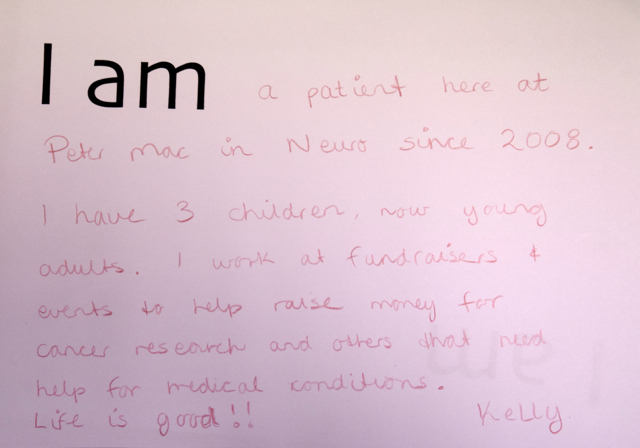 I am a patient here at
Peter Mac in Neuro since 2008.
I have 3 children, now young
adults. I work at fundraisers &
events to help raise money for
cancer research and others that need
help for medical conditions.
Life is good!! Kelly.
I am